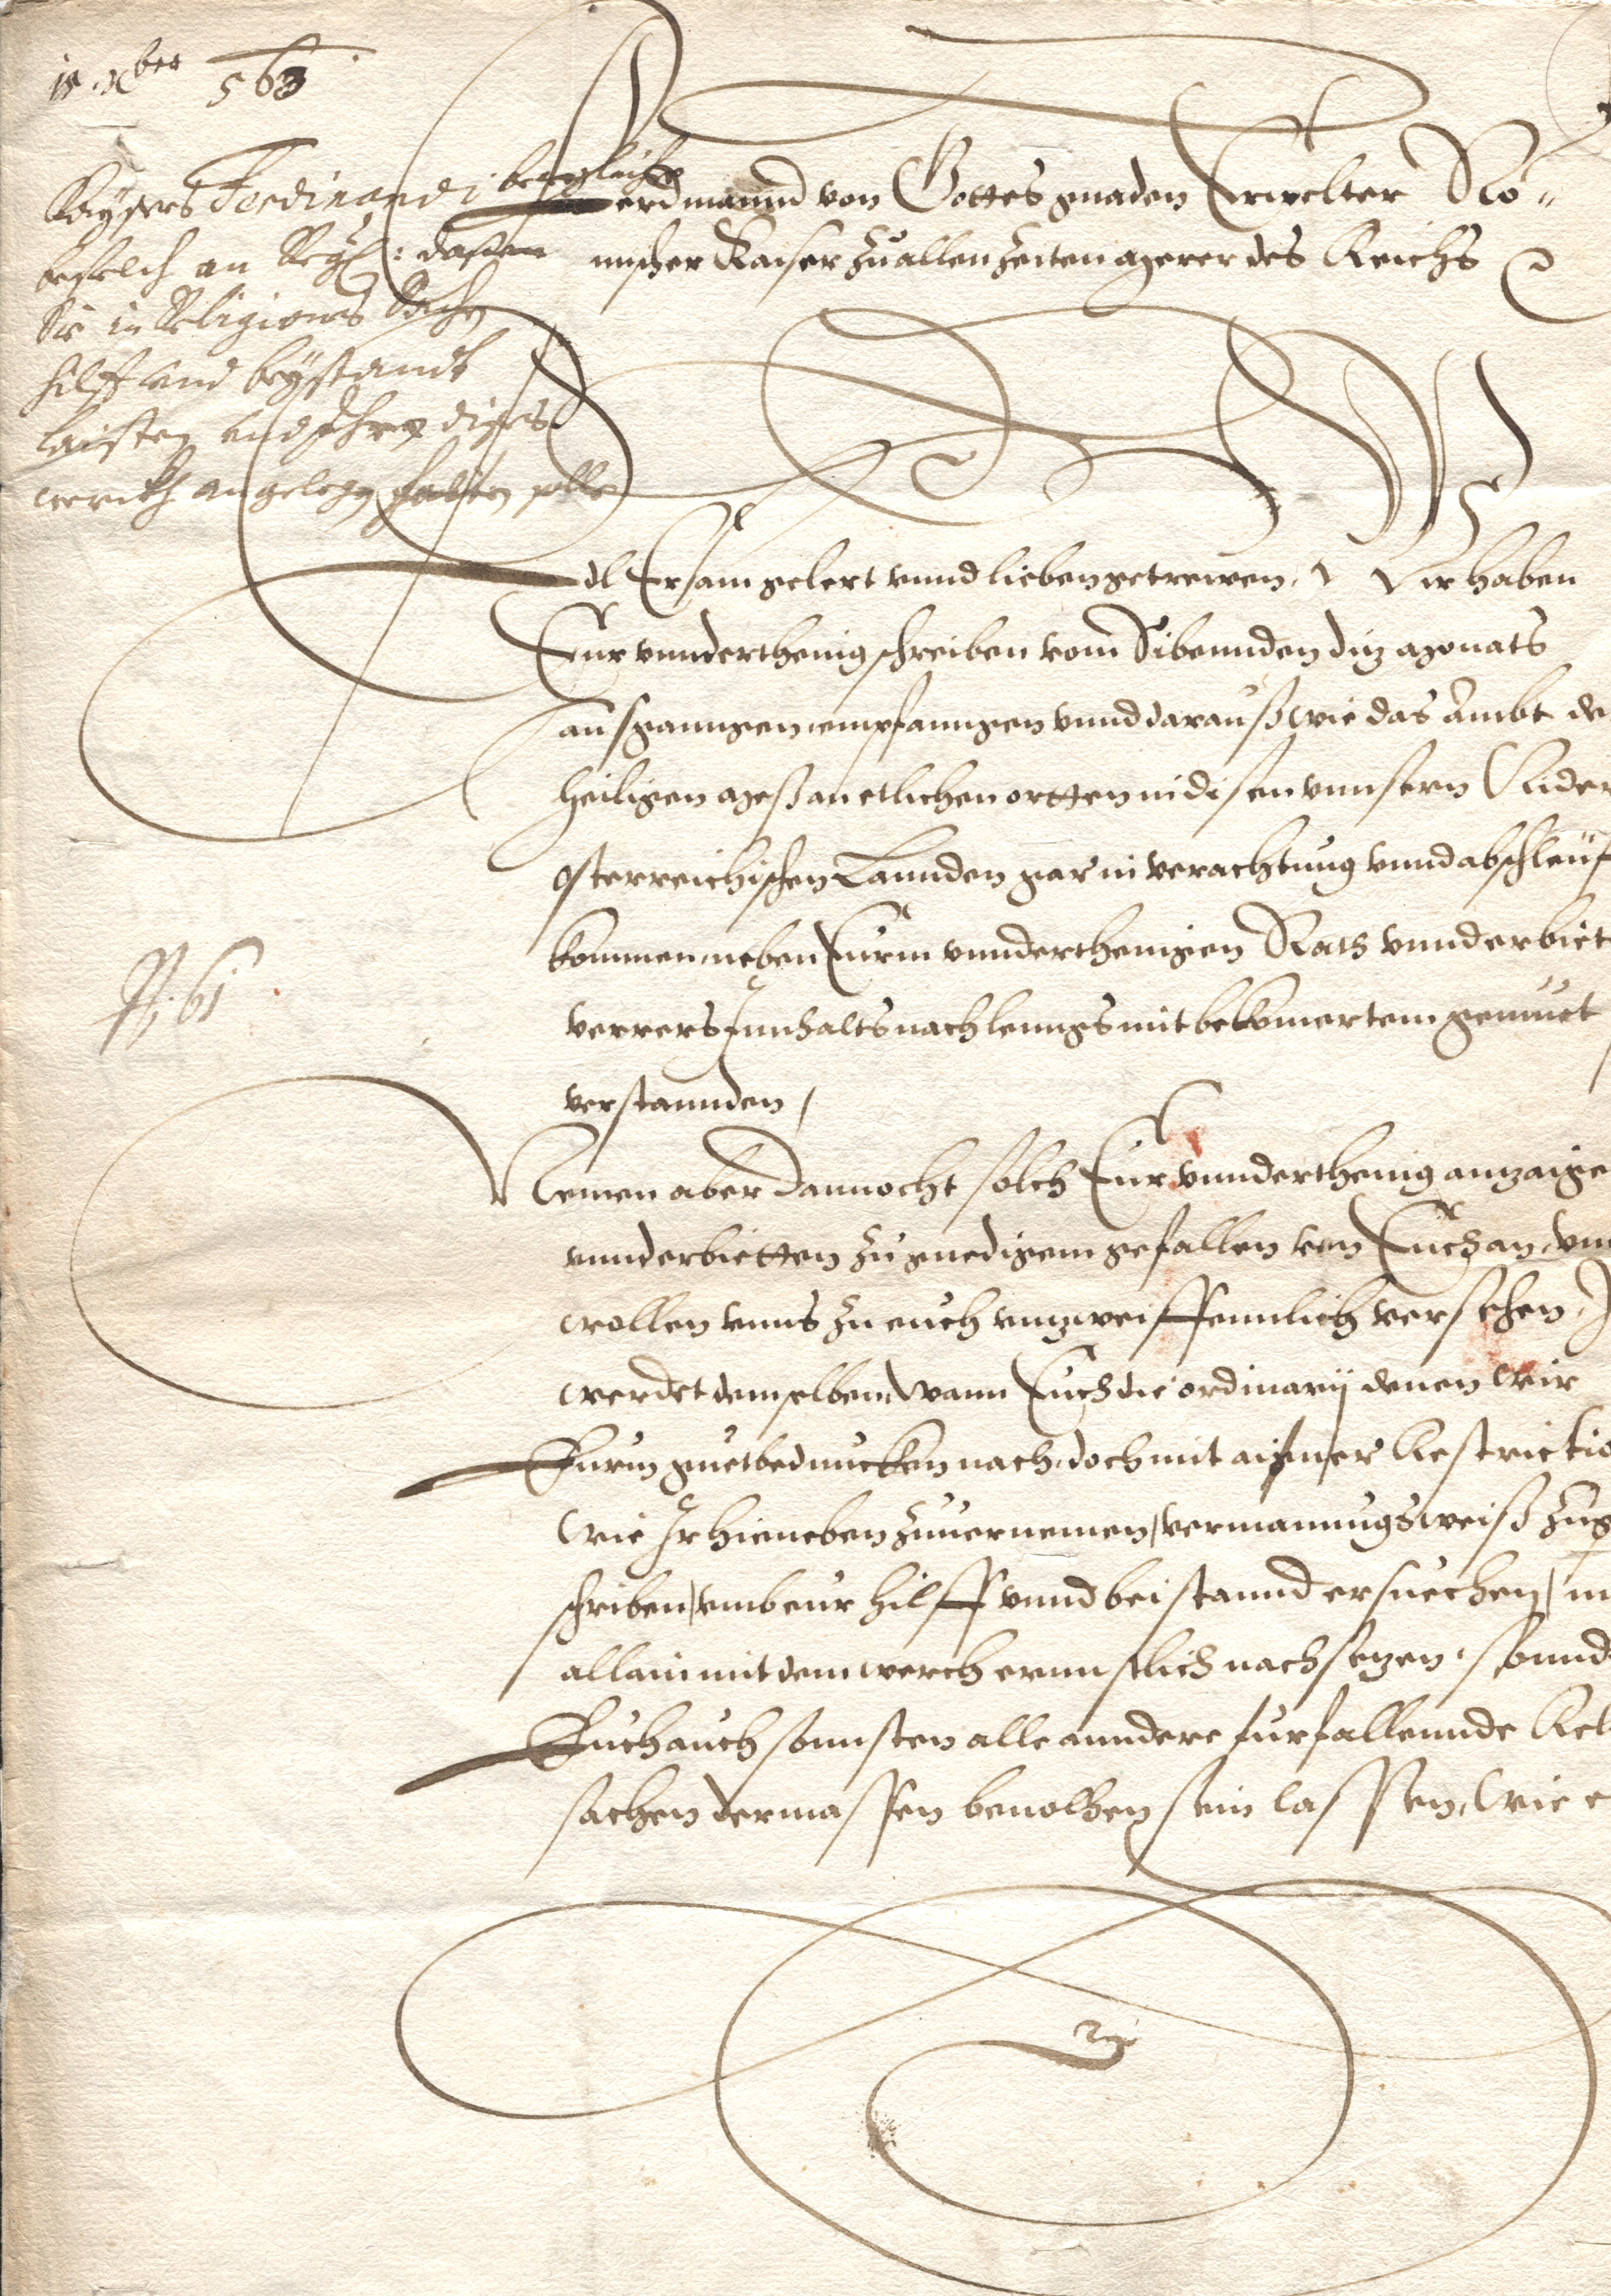 18. Xber 563.
Kaÿsers Ferdinandi beweglicher
befelch an Reg: dass
Sie in Religions Sachen
hilff und beÿstandt
laisten und ihnen dises
werckh angelegen halten solle
N. 61
Ferdinannd von Gottes gnaden Erwelter Rö-
mischer Kaiser zu allen Zeiten Merer des Reichs
Edl Ersam gelert vnnd lieben getrewen, Wir haben
Eur vnnderthenig schreiben vom Sibennden diz Monats
ausganngen empfanngen vnnd darauß wie das Ambt de
heiligen Meß an etlichen ortten in disen vnnsern Nider
osterreichischen Lannden gar in verachtung vnnd abschleuf
kommen, neben Eurm vnnderthenigen Rath vnnd erbiet
verrers Innhalts nach lenngs mit bekomertem gemuet
verstannden,
Nemen aber dannocht solch Eur vnnderthenig anzaige
vnnd erbietten zu gnedigem gefallen von Euch an, vnn
wollen vnns zu euch vnzweiffennlich versehen, I
werdet demselben, wann Euch die ordinarij denen wir
Eurm guetbeduncken nach, doch mit ainer Restrictio
wie Ir hieneben zuuernemen, vermanungsweiß zuge
schriben, vmb eur hilff vnnd beistannd ersuechen, ni
allain mit dem werch ernnstlich nachsetzen, sonnd
Euch auch sonnsten alle anndere furfallennde Reli
sachen dermassen beuolhen sein lassen, wie e